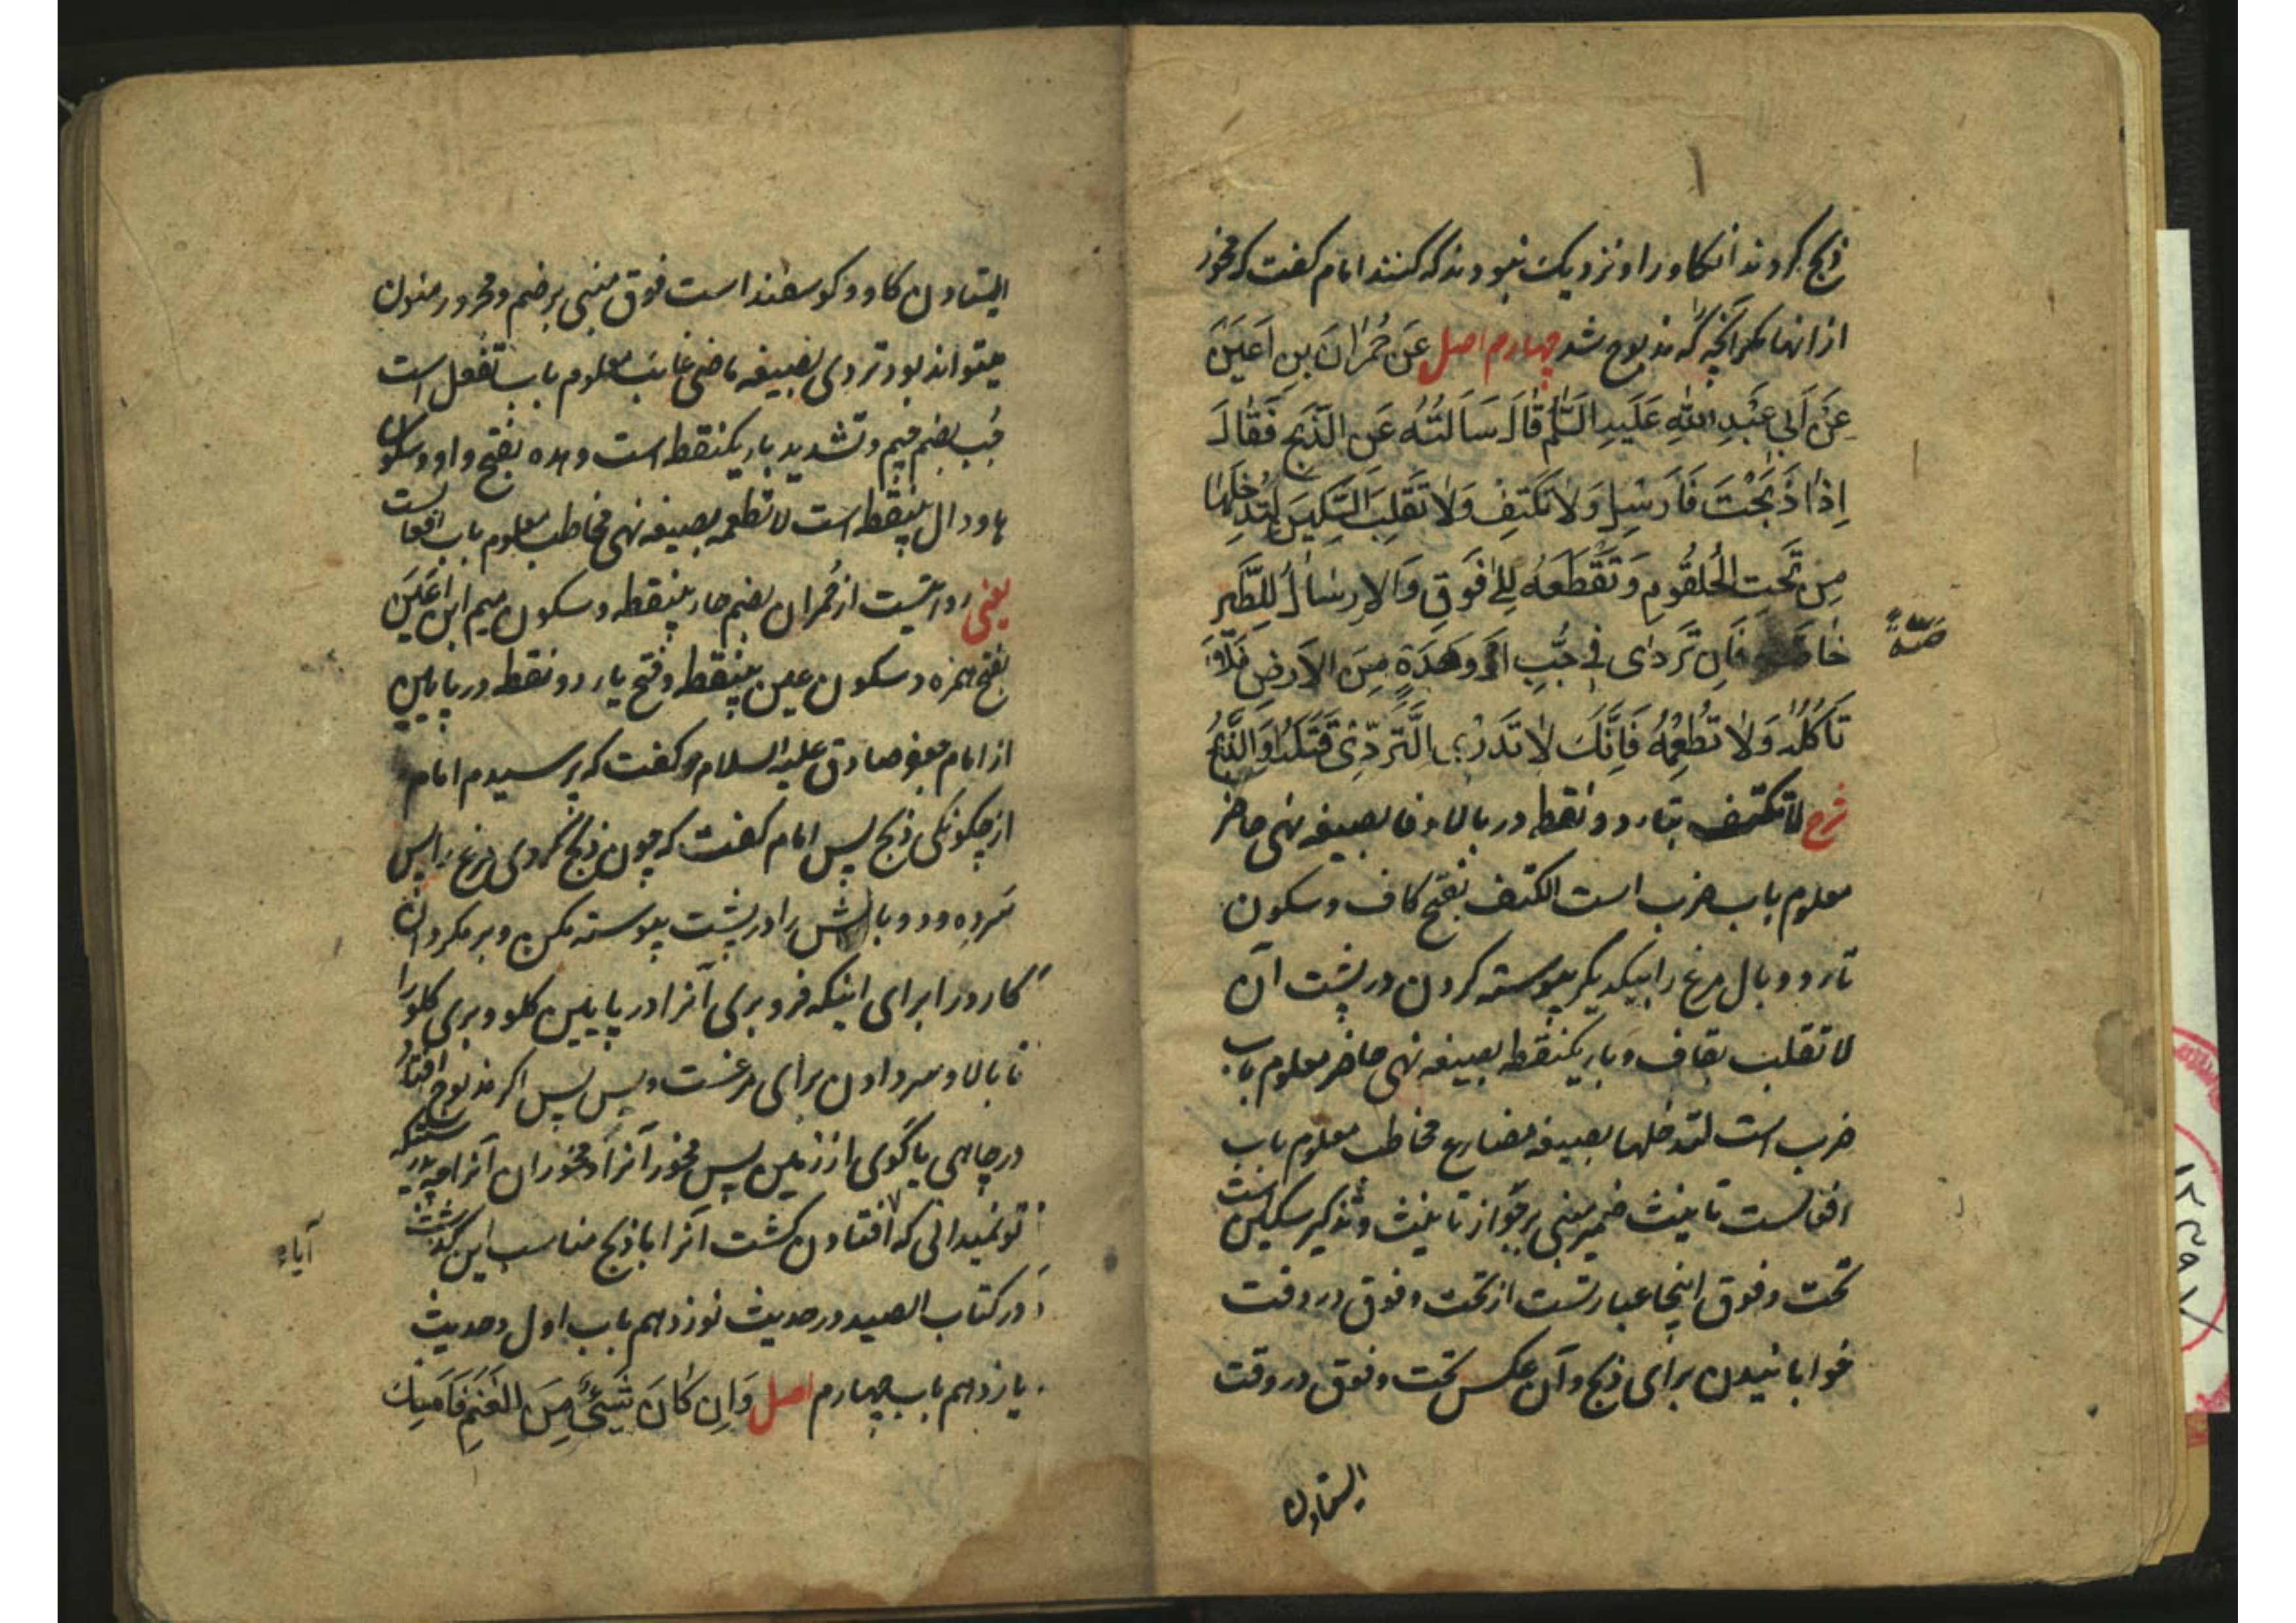 ذبح کردند انکاو را و نزدیک نبودند که کنند امام کفت که مخور
از انها مکر انچه که مذبوح شد چهارم اصل عَن حُمْرانَ بنِ اَعیَنَ
عَن اَبی عَبْدِ اللّٰهِ عَلَیهِ السَّلم قالَ سَاَلتُهُ عَنِ الذَّبحِ فَقالَ
اِذا ذَبَحْتَ فَاَرسِل وَلا تَکتِفْ وَلا تَقْلِبِ السِّکینَ لِتُدخِلَها
مِن تَحتِ الحُلقُومِ وَتَقْطَعَهُ اِلیٰ فَوقِ وَالاِرسالُ لِلطَّیرِ
خاصَّةً فَاِن تَرَدّی فی جُبٍّ اَو وَهْدَةٍ مِنَ الاَرضِ فَلا
صّةً
تَاکُلهُ وَلا تُطْعِمْهُ فَاِنَّکَ لا تَدری التَّرَدِّیْ قَتَلَهُ اَوِ الذَّبحُ
شرح لا تکتف بتاء دو نقطه در بالا و فا بصیغه نهی حاضر
معلوم باب ضرب است الکتف بفتح کاف و سکون
تا دو بال مرغ را بیکدیکر پیوسته کردن در پشت آن
لا تقلب بقاف و باء یکنقطه بصیغه نهی حاضر معلوم باب
ضرب است لتدخلها بصیغه مضارع مخاطب معلوم باب
افعالست تانیث ضمیر مبنی بر جواز تانیث و تذکیر سکین است
تحت و فوق اینجا عبارتست از تحت و فوق در وقت
خوابانیدن برای ذبح و آن عکس تحت و فوق در وقت
ایستادن
ایستادن کاو و کوسفند است فوق مبنی بر ضم و مجرور منون
میتواند بود تردی بصیغه ماضی غائب معلوم باب تفعل است
جُب بضم جیم و تشدید باء یکنقطه است وهده بفتح واو و سکون
ها و دال بینقطه است لا تطعمه بصیغه نهی مخاطب معلوم باب افعالست
یعنی روایتست از حُمران بضم حاء بینقطه و سکون میم ابن اَعْیَن
بفتح همزه و سکون عین بینقطه و فتح یاء دو نقطه در پایین
از امام جعفر صادق علیه السلام کفت که پرسیدم امام
از چکونکی ذبح پس امام کفت که چون ذبح کردی مرغ را پس
سَر ده و دو بالش را در پشت پیوسته مکن و بر مکردان
کارد را برای اینکه فرو بری آنرا در پایین کلو و بری کلو را
تا بالا و سر دادن برای مرغست و پس پس اکر مذبوح افتاد
در چاهی یا کوی از زمین پس مخور آنرا و مخوران آنرا چه بدرستیکه
تو نمیدانی که افتادن کشت آنرا یا ذبح مناسب این کذشت
آیاء
در کتاب الصید در حدیث نوزدهم باب اول و حدیث
یازدهم باب چهارم اصل وَاِن کانَ شَیْئٌ مِنَ الغَنَمِ فَاَمْسِک